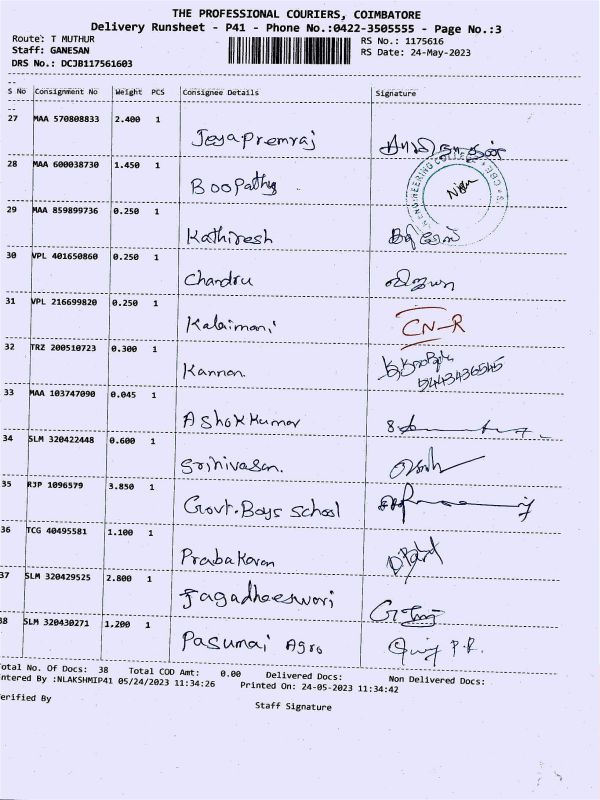 THE PROFESSIONAL COURIERS, COIMBATORE
Delivery Runsheet - P41 - Phone No.:0422-3505555 - Page No.:3
Route: T MUTHUR RS No.: 1175616
Staff: GANESAN RS Date: 24-May-2023
DRS No.: DCJB117561603
S No Consignment No Weight PCS Consignee Details Signature
27 MAA 570808833 2.400 1
Jeyapremraj
28 MAA 600038730 1.450 1
Boopathy
29 MAA 859899736 0.250 1
Kathiresh
30 VPL 401650860 0.250 1
Chandru விஜயா
31 VPL 216699820 0.250 1
Kalaimani CN-R
32 TRZ 200510723 0.300 1
Kannan
33 MAA 103747090 0.045 1
Ashokkumar
34 SLM 320422448 0.600 1
Srinivasan.
35 RJP 1096579 3.850 1
Govt.Boys School
36 TCG 40495581 1.100 1
Prabakaran
37 SLM 320429525 2.800 1
Jagadheeswari
38 SLM 320430271 1,200 1
Pasumai Agro
Total No. Of Docs: 38 Total COD Amt: 0.00 Delivered Docs: Non Delivered Docs:
ntered By :NLAKSHMIP41 05/24/2023 11:34:26 Printed On: 24-05-2023 11:34:42
erified By Staff Signature